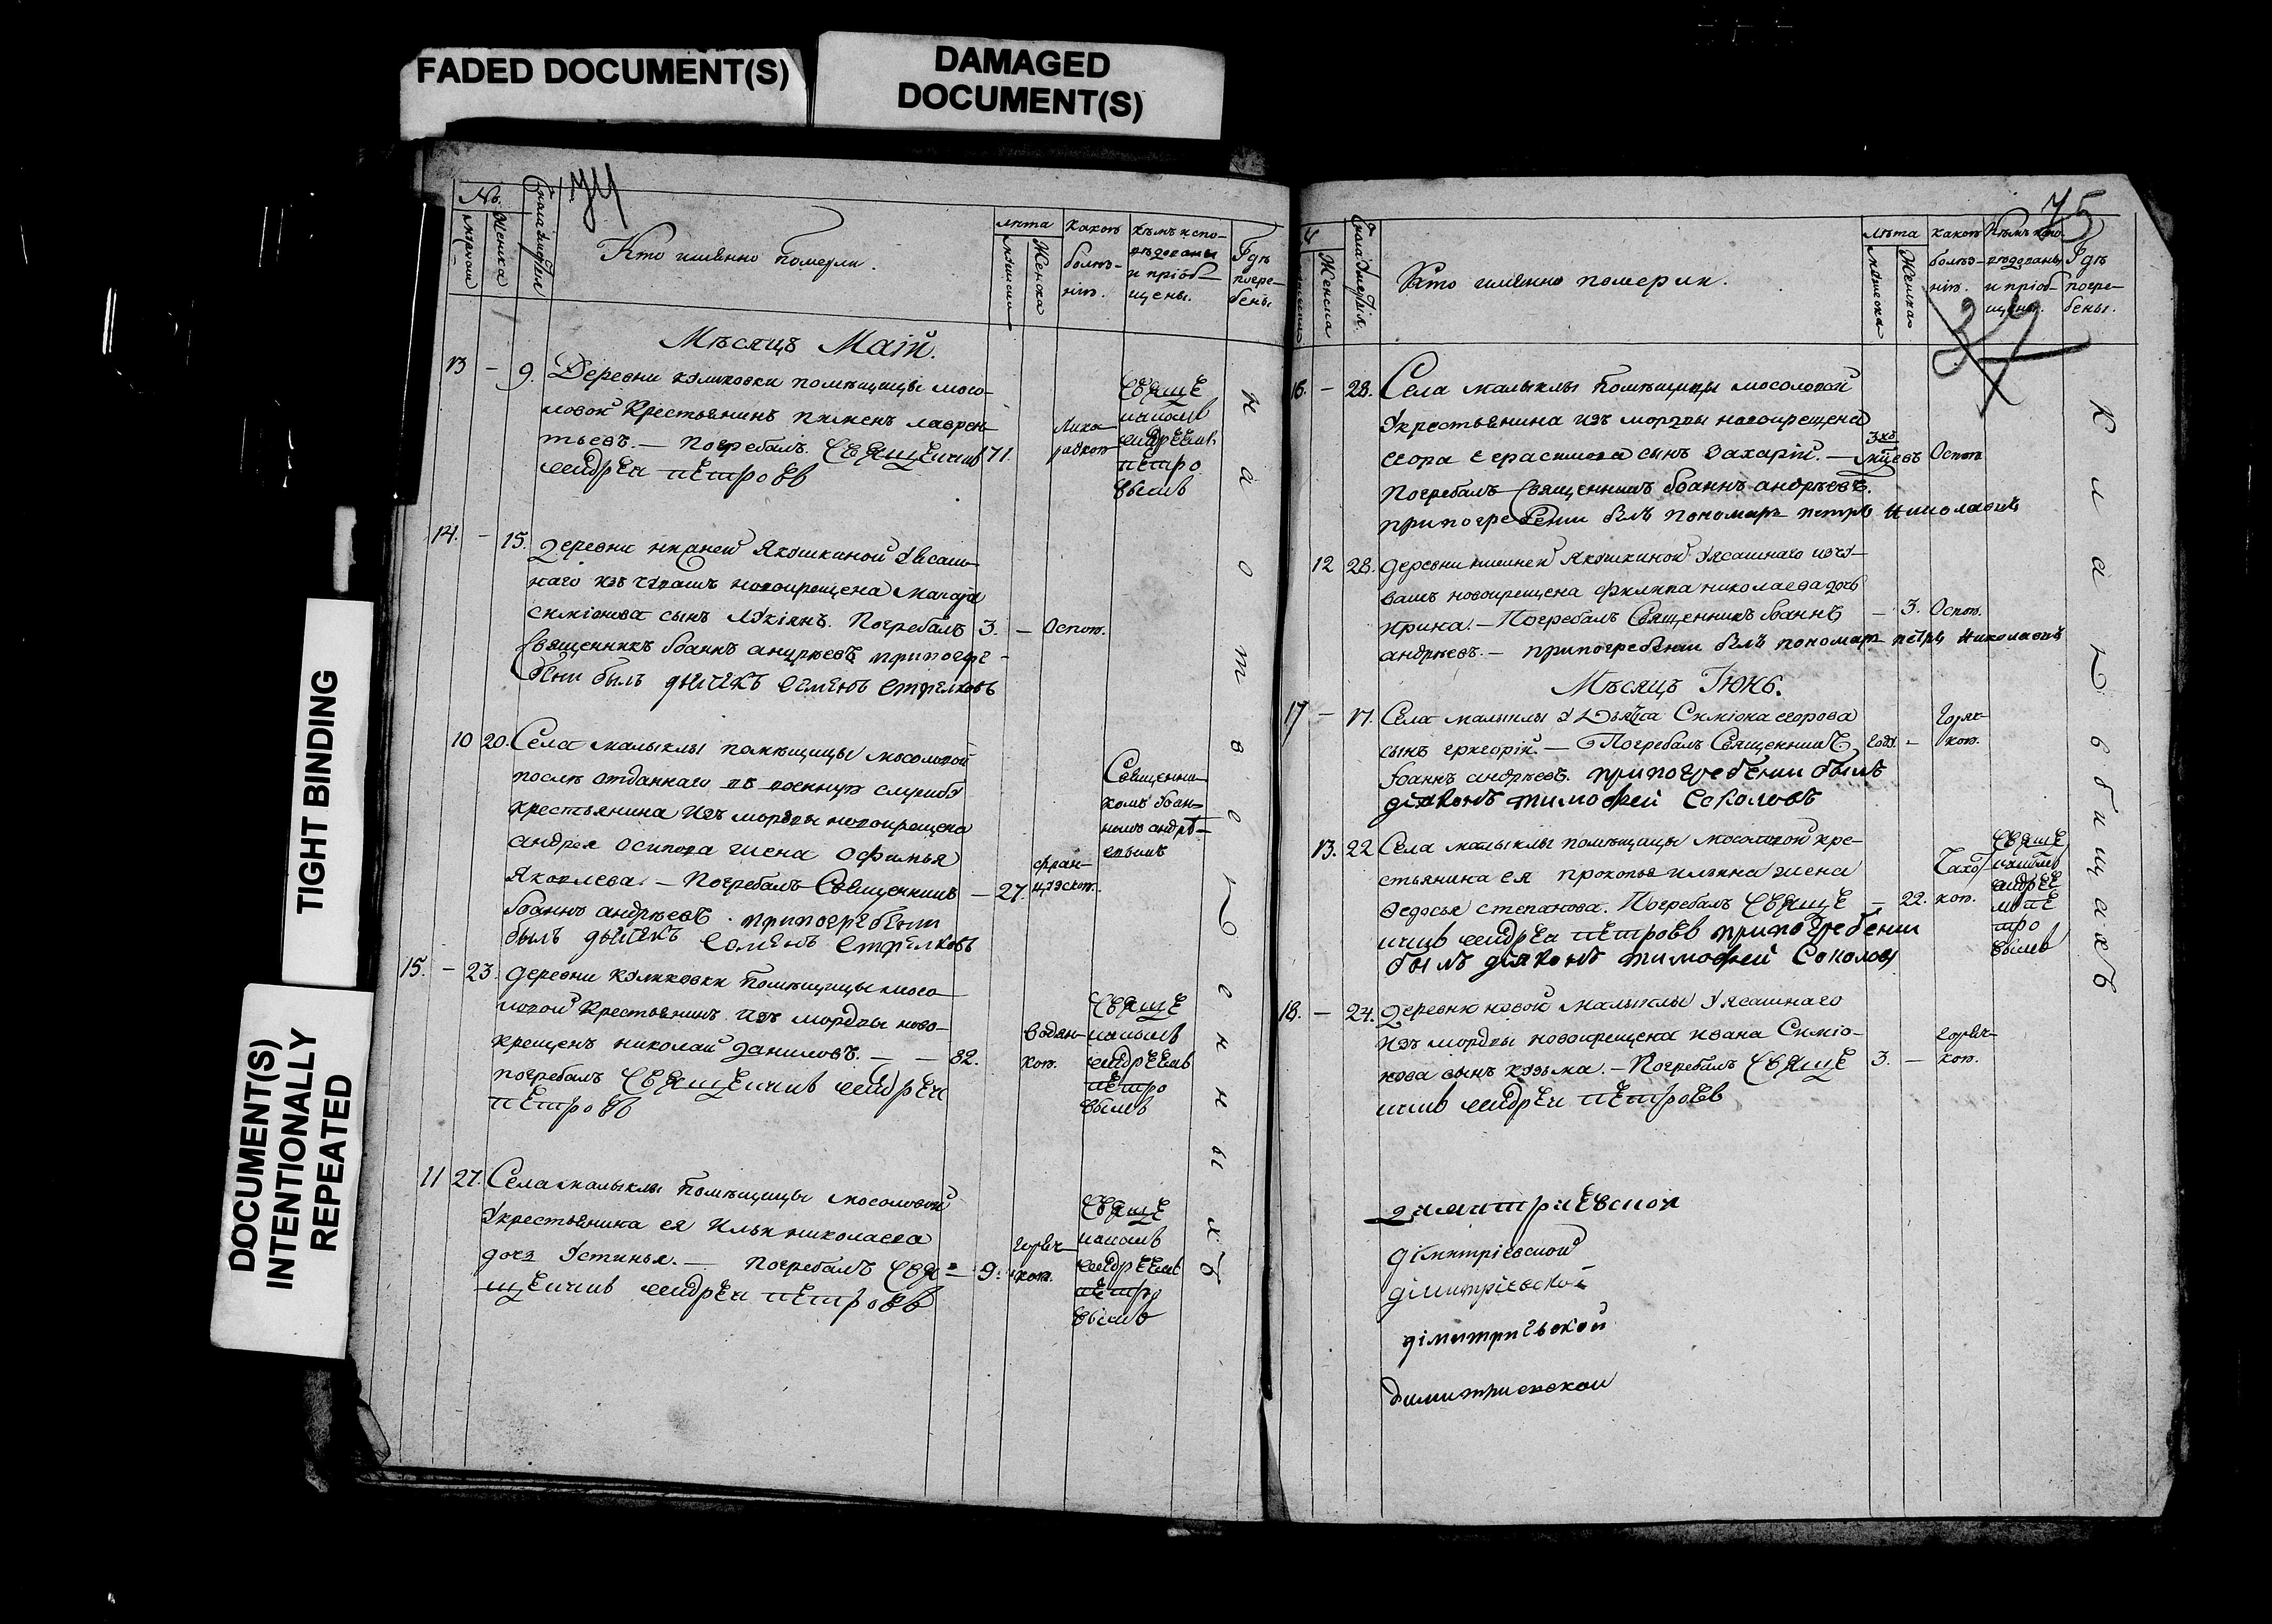 FADED DOCUMENT(S)
DAMAGED
DOCUMENT(S)
TIGHT BINDING
DOCUMENT(S)
INTENTIONALLY
REPEATED
74
№
Женска
Кто имянно померли.
лѣта
Женска
какою
болѣз-
нію.
кѣмъ испо-
вѣдованы
и пріоб-
щены.
Гдѣ
погре-
бены.
Мѣсяцъ Маій.
13 - 9. Деревни куликовки помѣщицы мосо-
ловой Крестьянинъ пименъ лаврен-
тьевъ. — Погребалъ. СвЯщЕнникъ 71.
андрЕи пЕтровъ
Лихо-
радкою
СвЯщЕ
никомъ
андрЕЕмъ
пЕтро
вымъ
14. - 15. Деревни нижней Якушкиной Уясаш-
наго изъ чувашъ новокрещена
симіонова сынъ Лукіянъ. Погребалъ 3. — Оспою.
Священникъ Іоаннъ андрѣевъ припогре-
бѣни былъ дьячекъ семенъ стрелковъ
10 20. Села малыклы помѣщицы мосоловой
послѣ отданнаго въ военную службу
крестьянина изъ мордвы новокрещена
андрея осипова жена офимья
Яковлева. — Погребалъ Священникъ — 27.
Іоаннъ андрѣевъ. припогребѣнии
былъ дьячекъ семенъ стрелковъ
фран-
цускою.
Священни-
комъ Іоан-
номъ андрѣ-
евымъ
15. - 23. деревни куликовки помѣщицы мосо-
ловой Крестьянинъ изъ мордвы ново-
крещенъ николай даниловъ. — — 82.
погребалъ СвЯщЕнникъ андрЕи
пЕтровъ
Водян-
кою.
СвЯщЕ
никомъ
андрЕЕмъ
пЕтро
вымъ
11 27. Села малыклы помѣщицы мосоловой
Укрестьянина ея Ильи николаева
дочь Устинья. — погребалъ СвЯ= — 9.
щЕнникъ андрЕи пЕтровъ
горяч-
кою.
СвЯщЕ
никомъ
андрЕЕмъ
пЕтро
вымъ
на отведенныхъ
75
Женска
Кто имянно померли.
лѣта
Женска
какою
болѣз-
нію.
Кѣмъ испо-
вѣдованы
и пріоб-
щены.
Гдѣ
погре-
бены.
16. - 28. Села малыклы помѣщицы мосоловой
Укрестьянина изъ мордвы новокрещена
егора герасимова сынъ Захарій. — мцевъ Оспою
Погребалъ Священникъ Іоаннъ андрѣевъ.
припогребении былъ пономарь петръ николаевъ
12 28. деревни нижней Якушкиной Уясашнаго изчу-
вашъ новокрещена филипа николаева дочь
ирина. — Погребалъ Священникъ Іоаннъ — 3. Оспою.
андрѣевъ. — припогребении былъ пономарь петръ николаевъ
Мѣсяцъ Іюнь.
17 - 17. Села малыклы У Дьячка Симіона егорова
сынъ григорій. — Погребалъ Священникъ году. —
Іоаннъ андрѣевъ. припогребении былъ
діаконъ тимофеи Соколовъ
Горяч-
кою.
13. 22 Села малыклы помѣщицы мосоловой кре-
стьянина ея прокопья ильина жена
Федосья степанова. Погребалъ СвЯщЕ — 22.
никъ андрЕи пЕтровъ припогребении
былъ діаконъ тимофей Соколовъ
Чахо-
кою.
СвЯщЕ
никомъ
андрЕЕ
мъ пЕ
тро
вымъ
18. - 24. Деревни новой малыклы Уясашнаго
изъ мордвы новокрещена ивана Симіо-
нова сынъ кузьма. — Погребалъ СвЯщЕ 3. —
никъ андрЕи пЕтровъ
горяч-
кою.
кладбищахъ
димитриЕвской
діми­тріевской
дімитріевской
дімитриевской
димитриевской